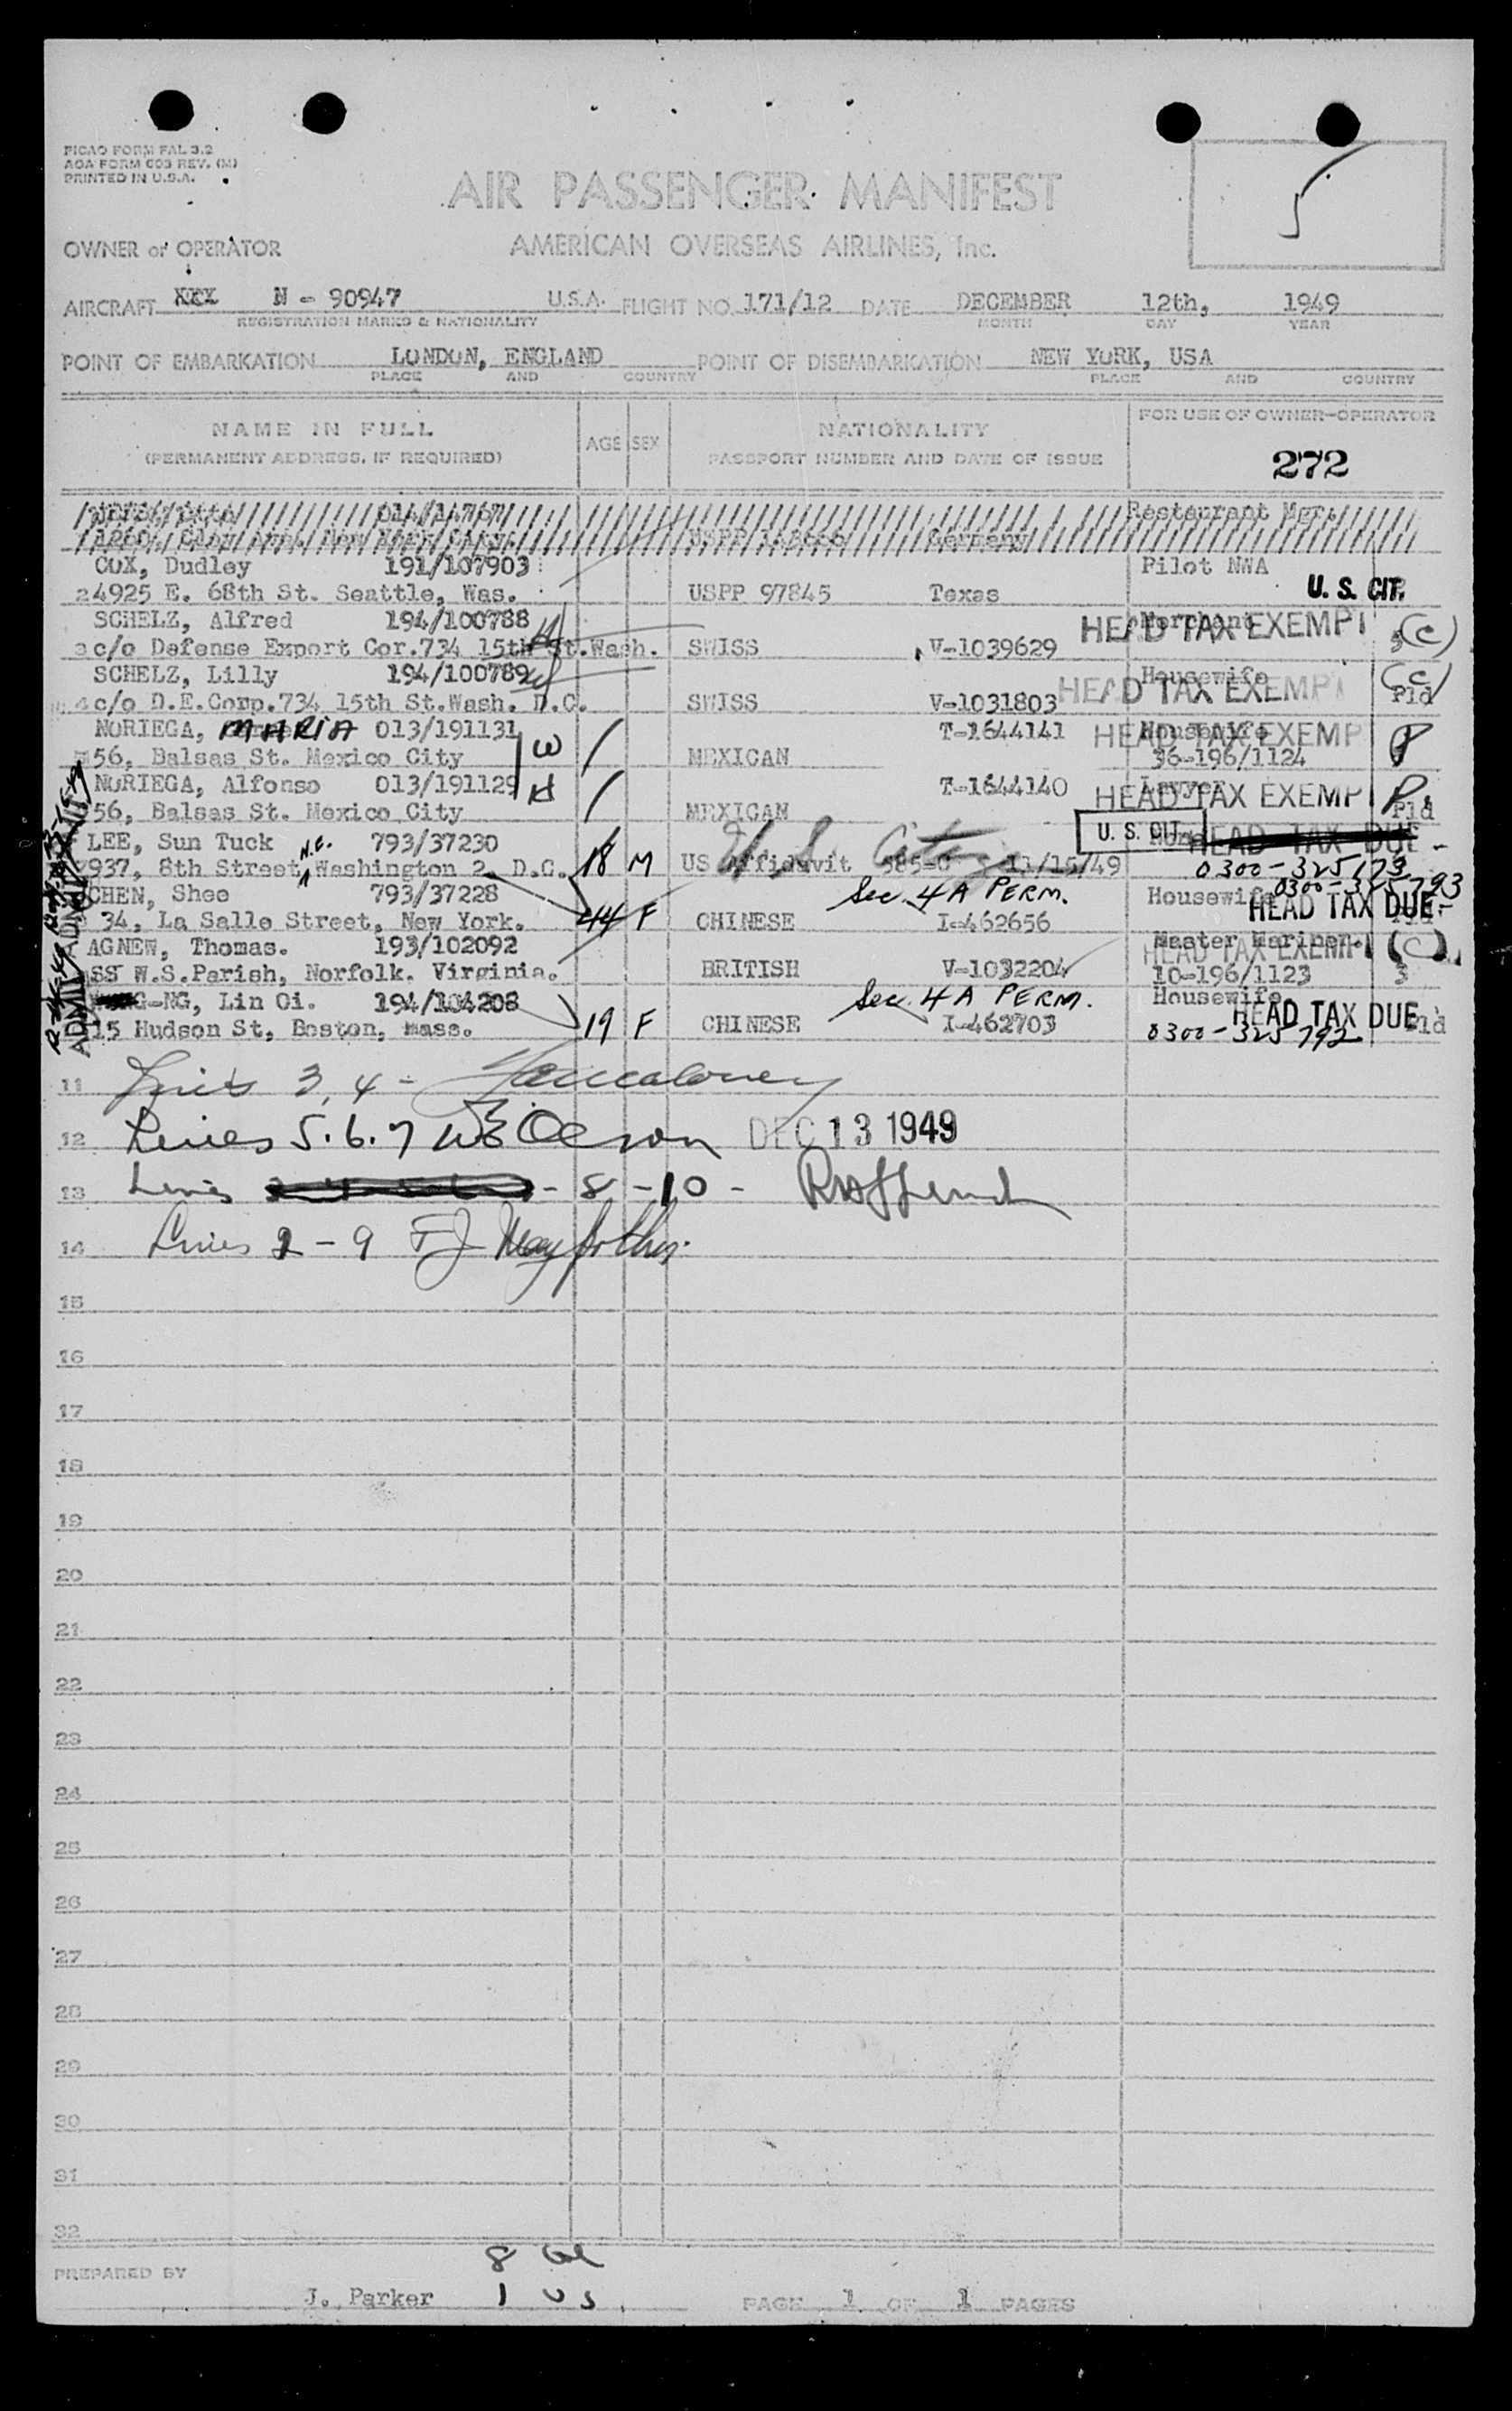 PICAO FORM FAL 3.2
AOA FORM 603 REV. (M)
PRINTED IN U.S.A.
AIR PASSENGER MANIFEST
OWNER or OPERATOR AMERICAN OVERSEAS AIRLINES, Inc.
AIRCRAFT XXX N - 90947 U.S.A. FLIGHT NO. 171/12 DATE DECEMBER 12th, 1949
REGISTRATION MARKS & NATIONALITY MONTH DAY YEAR
POINT OF EMBARKATION LONDON, ENGLAND POINT OF DISEMBARKATION NEW YORK, USA
PLACE AND COUNTRY PLACE AND COUNTRY
NAME IN FULL AGE SEX NATIONALITY FOR USE OF OWNER-OPERATOR
(PERMANENT ADDRESS, IF REQUIRED) PASSPORT NUMBER AND DATE OF ISSUE 272
Restaurant Mgr.
USPP Germany
COX, Dudley 191/107903 Pilot NWA
2 4925 E. 68th St. Seattle, Was. USPP 97845 Texas U. S. CIT.
SCHELZ, Alfred 194/100788 Merchant HEAD TAX EXEMPT
3 c/o Defense Export Cor.734 15th St.Wash. SWISS V-1039629 3 (C)
SCHELZ, Lilly 194/100789 Housewife HEAD TAX EXEMPT (C)
4 c/o D.E.Corp.734 15th St.Wash. D.C. SWISS V-1031803 Pld
NORIEGA, MARIA 013/191131 W T-1644141 Housewife HEAD TAX EXEMP P
56, Balsas St. Mexico City MEXICAN 36-196/1124
NORIEGA, Alfonso 013/191129 H T-1644140 Lawyer HEAD TAX EXEMP P.
56, Balsas St. Mexico City MEXICAN Pld
LEE, Sun Tuck 793/37230 U. S. Citiz U. S. CIT. HEAD TAX DUE
937, 8th Street, N.E. Washington 2, D.C. 18 M US Affidavit 585-C 11/15/49 0300-325173
CHEN, Shee 793/37228 Sec. 4A PERM. Housewife 0300-325793
34, La Salle Street, New York. 44 F CHINESE I-462656 HEAD TAX DUE
AGNEW, Thomas. 193/102092 Master Mariner. HEAD TAX EXEMPT (C)
SS W.S.Parish, Norfolk. Virginia. BRITISH V-1032204 10-196/1123 3
-NG, Lin Oi. 194/104208 Sec. 4A PERM. Housewife HEAD TAX DUE
15 Hudson St, Boston, mass. 19 F CHINESE I-462703 0300-325792 Pld
11 Lines 3, 4 -
12 Lines 5.6.7 Olson DEC 13 1949
13 Lines - 8 - 10 -
14 Lines 2 - 9 TJ
15
16
17
18
19
20
21
22
23
24
25
26
27
28
29
30
31
32
8
PREPARED BY J. Parker 1 US PAGE 1 OF 1 PAGES